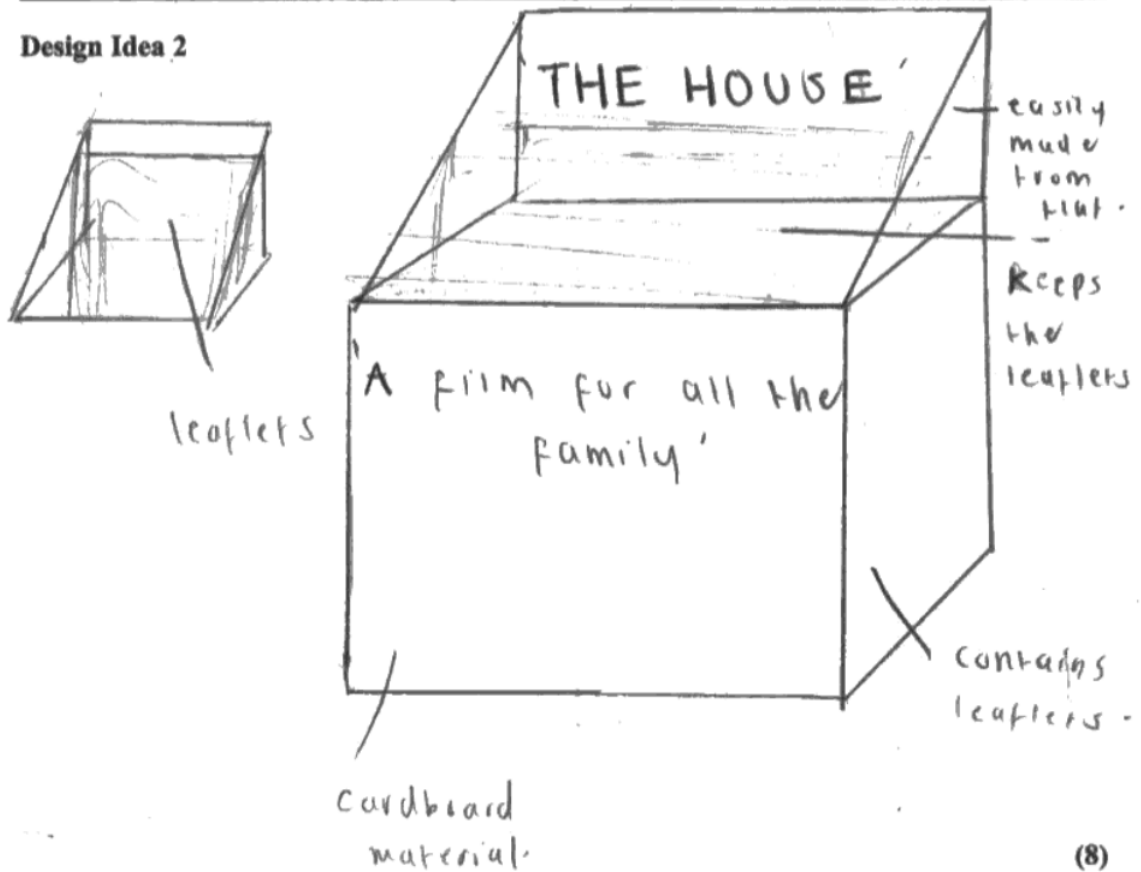 Design Idea 2
'THE HOUSE'
easily
made
from
flat.
keeps
the
leaflets
leaflets
'A film for all the
family'
contains
leaflets.
cardboard
material.
(8)